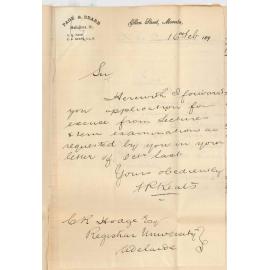 PAGE & BEARE
Ellen Street, Moonta,
16 Feb 189
Sir
Herewith I forward
you application for
excuse from Lectures
& term examinations as
requested by you in your
letter of Octr last
Yours obediently
C R Hodge Esq
Registrar University
Adelaide